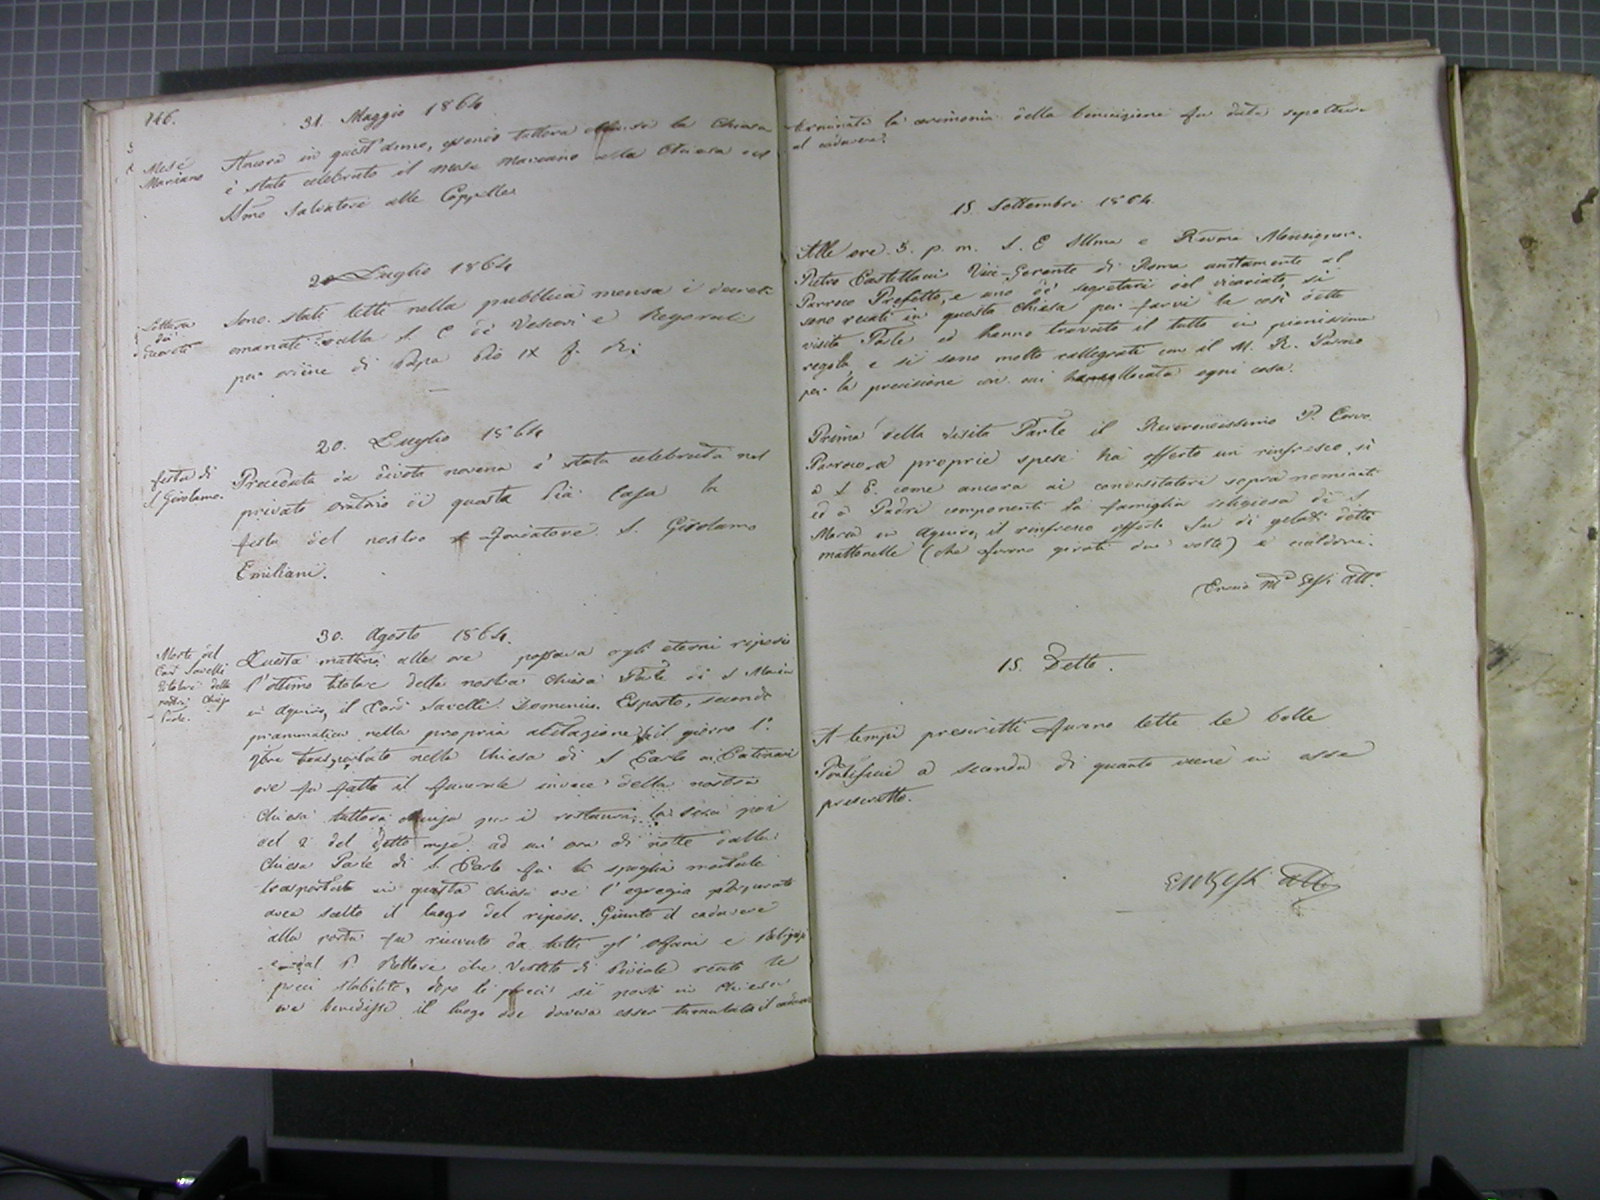 146.
31. Maggio 1864
Mese
Mariano
Ancora in quest'anno, essendo tuttora chiusa la Chiesa
è stato celebrato il mese mariano alla Chiesa del
SSmo Salvatore alle Coppelle
20 Luglio 1864
Lettura
dei
Decreti
Sono stati letti nella pubblica mensa i decreti
emanati dalla S. C. de' Vescovi e Regolari
per ordine di Papa Pio IX
20. Luglio 1864
festa di
S. Girolamo.
Preceduta da divota novena è stata celebrata nel
privato oratorio di questa Pia Casa la
festa del nostro Fondatore S. Girolamo
Emiliani.
30. Agosto 1864.
Morte del
Card Savelli
titolare della
nostra Chiesa
Parle.
Questa mattina alle ore passava agli eterni riposi
l'ottimo titolare della nostra Chiesa Parle di S Maria
in Aquiro, il Card Savelli Domenico. Esposto, secondo
prammatica nella propria abitazione, il giorno 1°
7bre trasportato nella Chiesa di S Carlo ai Catinari
ove fu fatto il funerale invece della nostra
Chiesa tuttora chiusa per i restauri; la sera poi
del 2 del detto mese ad un' ora di notte dalla
Chiesa Parle di S. Carlo fu la spoglia mortale
trasportata in questa chiesa ove l'egregio porporato
avea scelto il luogo del riposo. Giunto il cadavere
alla porta fu ricevuto da tutti gl' Orfani e Religiosi
e dal P. Rettore che vestito di Piviale recitò le
preci stabilite, dopo le preci si portò in Chiesa
ove benedisse il luogo ove doveva esser tumulata il cadavere
terminata la cerimonia della benedizione fu data sepoltura
al cadavere.
15. Settembre 1864
Alle ore 5. p. m. S. E Illma e Revma Monsignor.
Pietro Castellani Vice-Gerente di Roma unitamente al
Parroco Prefetto, e uno de' segretari del vicariato, si
sono recati in questa Chiesa per farvi la così detta
visita Parle ed hanno trovato il tutto in pienissima
regola, e si sono molto rallegrati con il M. R. Parroco
per la precisione con cui collocata ogni cosa.
Prima della visita Parle il Reverendissimo P. Corvo
Parroco a proprie spese ha offerto un rinfresco, sì
a S E. come ancora ai convisitatori sopra nominati
ed a Padri componenti la famiglia religiosa di S
Maria in Aquiro; il rinfresco offerto fu di gelati detti
mattonelle (che furono girati due volte) e cialdoni.
Ennio Ma Gessi Atto
15. Detto.
A tempi prescritti furono lette le bolle
Pontificie a seconda di quanto viene in esse
prescritto.
EMGessi Atto